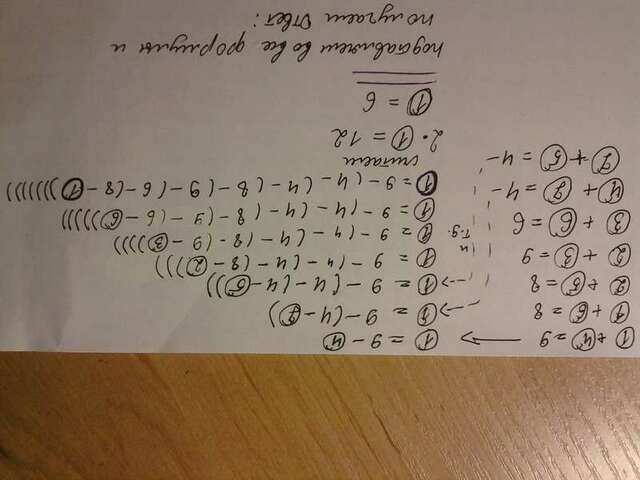 ① + ④ = 9 → ① = 9 - ④
① + ⑥ = 8
② + ⑤ = 8
② + ③ = 9
③ + ⑥ = 6
④ + ⑦ = 4
⑦ + ⑤ = 4
и
т.д.
① = 9 - (4 - ⑦)
① = 9 - (4 - (4 - ⑤))
① = 9 - (4 - (4 - (8 - ②))))
① = 9 - (4 - (4 - (8 - (9 - ③)))))
① = 9 - (4 - (4 - (8 - (9 - (6 - ⑥))))))
① = 9 - (4 - (4 - (8 - (9 - (6 - (8 - ①)))))))
считаем
2 · ① = 12
① = 6
подставляем во все формулы и
получаем ответ: